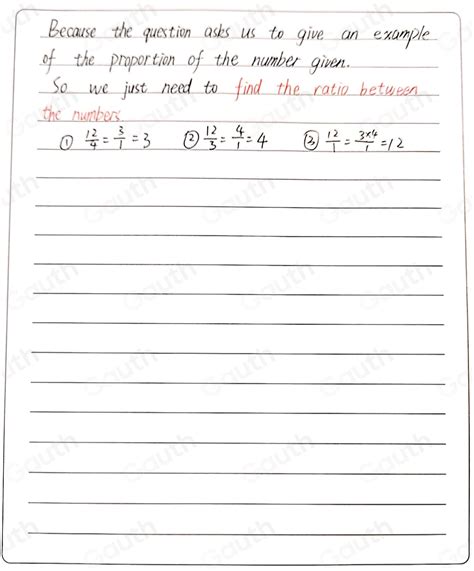 Because the question asks us to give an example
of the proportion of the number given.
So we just need to find the ratio between
the numbers
① 12/4 = 3/1 = 3 ② 12/3 = 4/1 = 4 ③ 12/1 = 3×4/1 = 12
Gauth